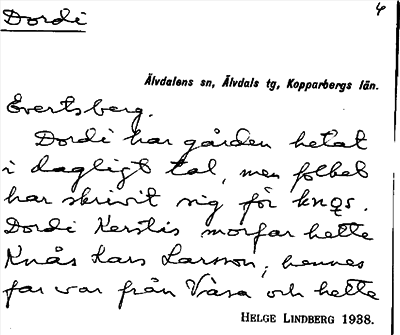 Dordi
4
Älvdalens sn, Älvdals tg, Kopparbergs län.
Evertsberg.
Dordi har gården hetat
i dagligt tal, men folket
har skrivit sig för knås.
Dordi Kerstis morfar hette
Knås Lars Larsson, hennes
far var från Våsa och hette
HELGE LINDBERG 1938.